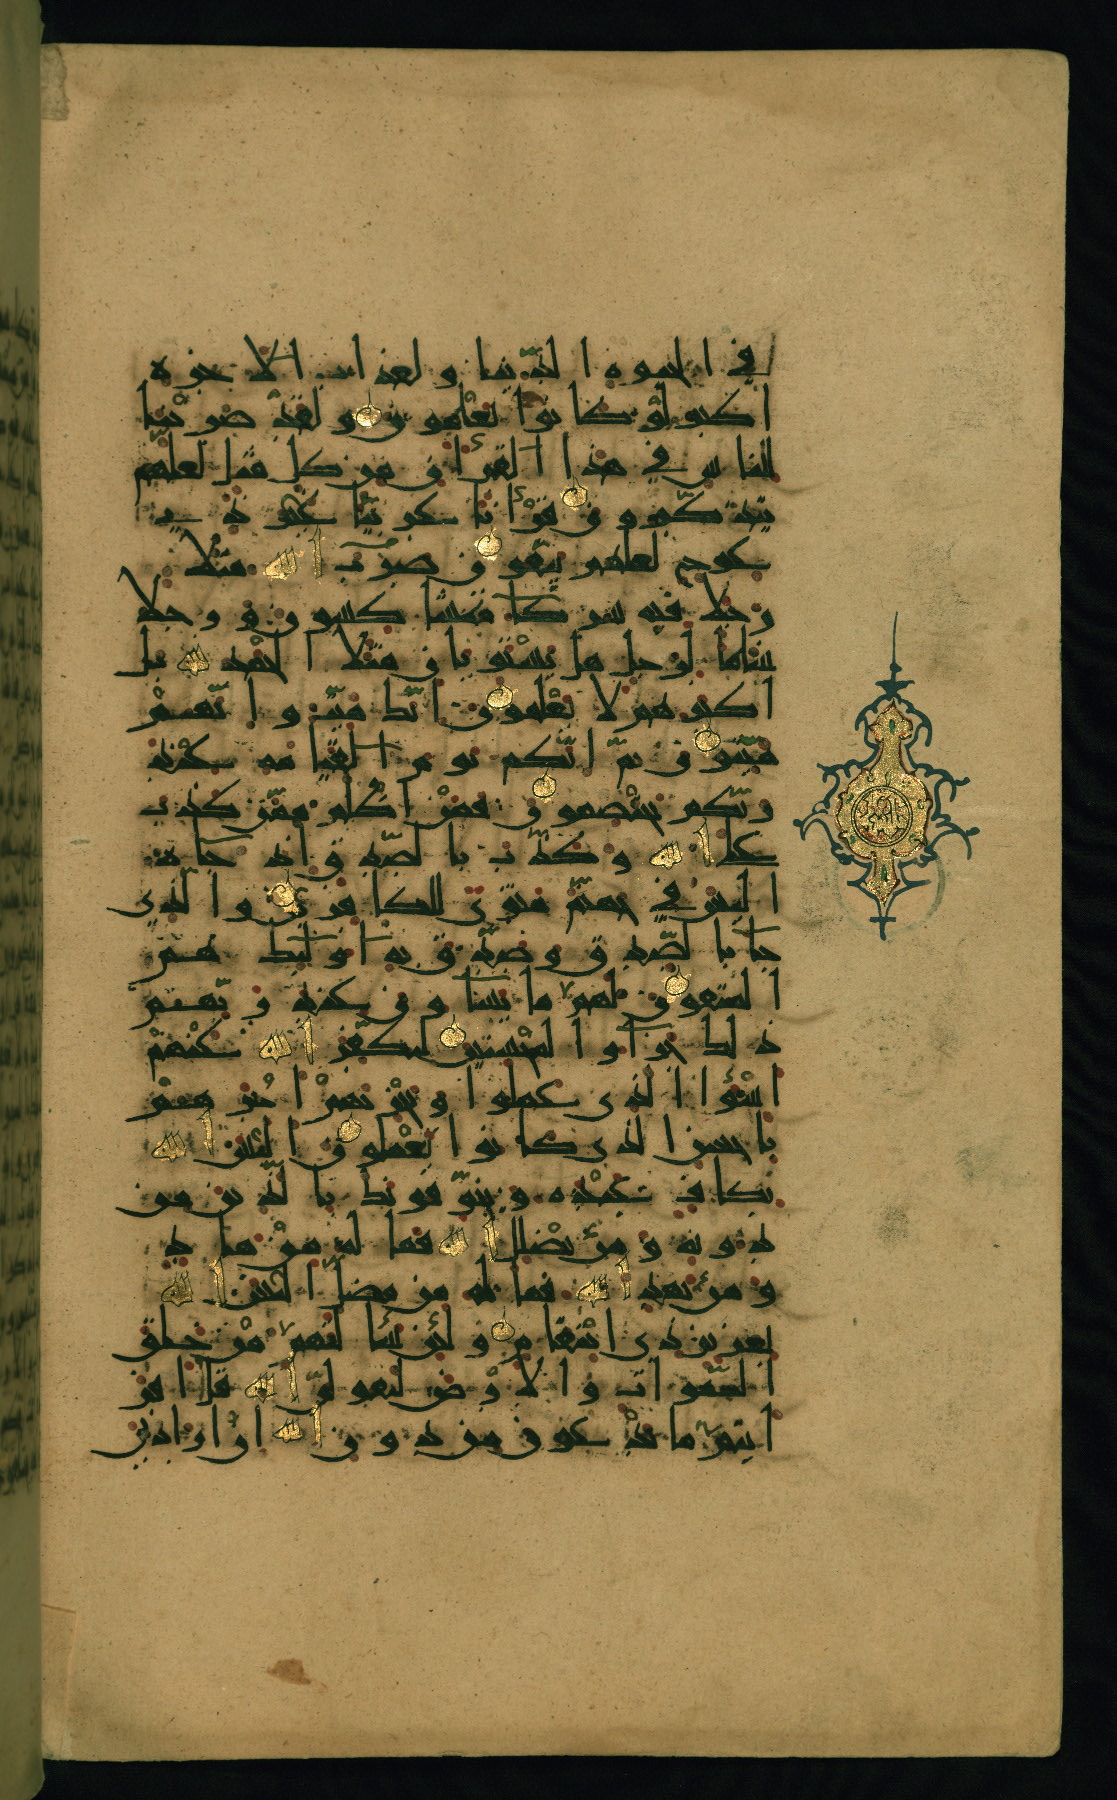 في الحيوة الدنيا ولعذاب الاخرة
اكبر لو كانوا يعلمون ولقد ضربنا
للناس في هذا القرءان من كل مثل لعلهم
يتذكرون قرءانا عربيا غير ذي
عوج لعلهم يتقون ضرب الله مثلا
رجلا فيه شركا متشاكسون ورجلا
سالما لرجل هل يستويان مثلا الحمد لله بل
اكثرهم لا يعلمون انك ميت وانهم
ميتون ثم انكم يوم القيامة عند
ربكم تختصمون فمن اظلم ممن كذب
على الله وكذب بالصدق اذ جاه
اليس في جهنم مثوى للكافرين والذي
جا بالصدق وصدق به اوليك هم
المتقون لهم ما يشاون عند ربهم
ذلك جزاوا المحسنين ليكفر الله عنهم
اسوأ الذي عملوا ويجزيهم اجرهم
باحسن الذي كانوا يعملون اليس الله
بكاف عبده ويخوفونك بالذين من
دونه ومن يضلل الله فما له من هاد
ومن يهد الله فما له من مضل اليس الله
بعزيز ذي انتقام ولئن سالتهم من خلق
السموات والارض ليقولن الله قل افر
ايتم ما تدعون من دون الله ان ارادني